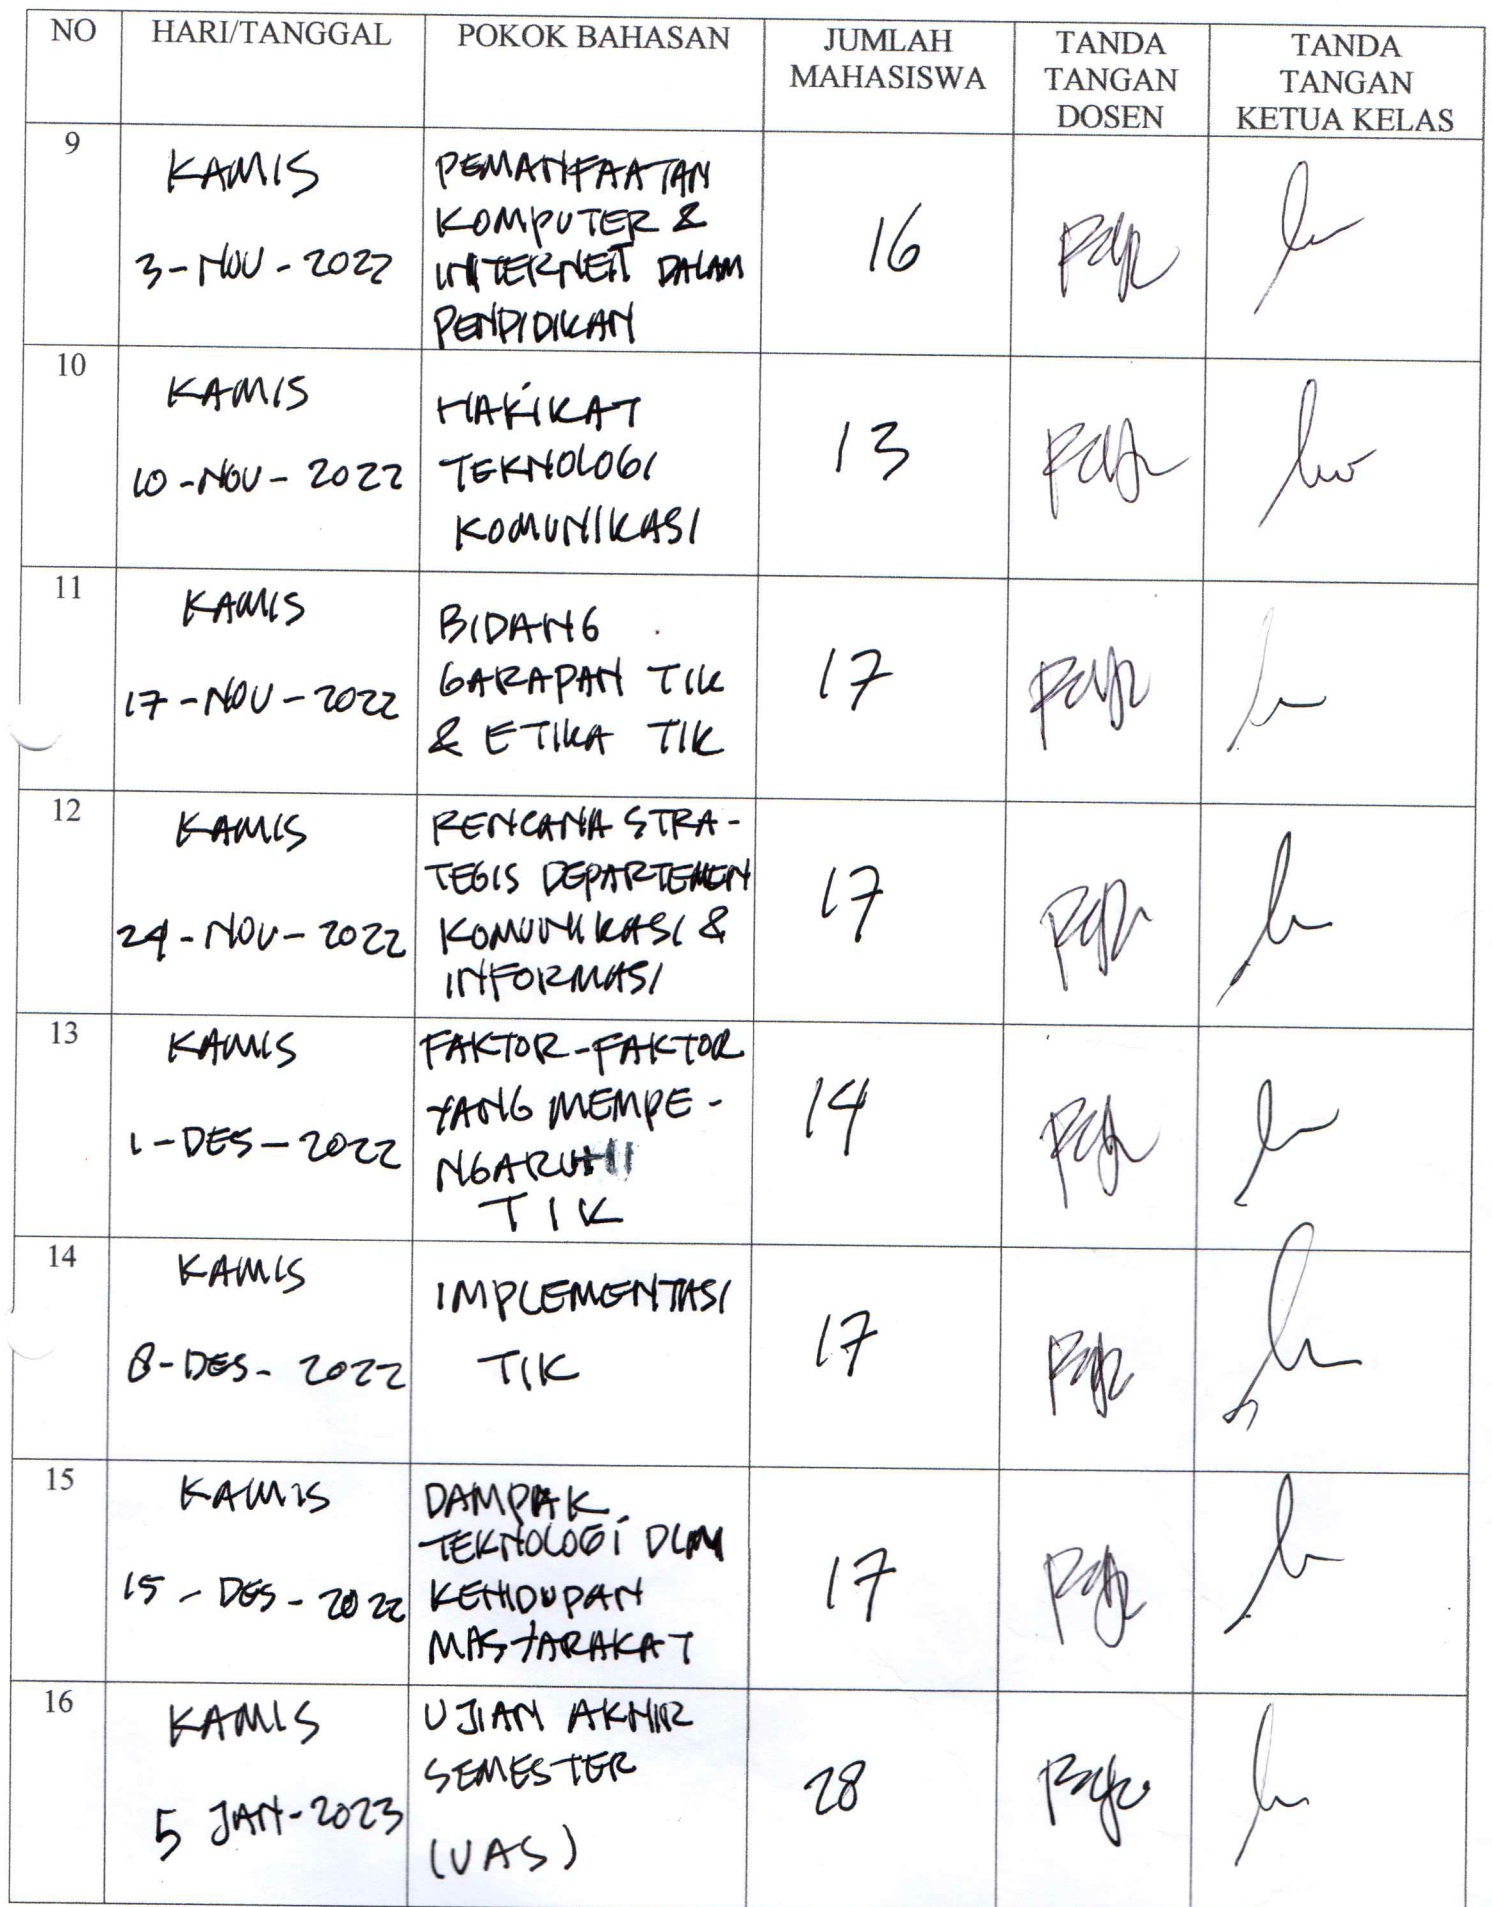 NO HARI/TANGGAL POKOK BAHASAN JUMLAH MAHASISWA TANDA TANGAN DOSEN TANDA TANGAN KETUA KELAS
9
KAMIS
3-NOV-2022
PEMANFAATAN
KOMPUTER &
INTERNET DALAM
PENDIDIKAN
16
10
KAMIS
10-NOV-2022
HAKIKAT
TEKNOLOGI
KOMUNIKASI
13
11
KAMIS
17-NOV-2022
BIDANG
GARAPAN TIK
& ETIKA TIK
17
12
KAMIS
24-NOV-2022
RENCANA STRA-
TEGIS DEPARTEMEN
KOMUNIKASI &
INFORMASI
17
13
KAMIS
1-DES-2022
FAKTOR-FAKTOR
YANG MEMPE-
NGARUHI
TIK
14
14
KAMIS
8-DES-2022
IMPLEMENTASI
TIK
17
15
KAMIS
15-DES-2022
DAMPAK
TEKNOLOGI DLM
KEHIDUPAN
MASYARAKAT
17
16
KAMIS
5 JAN-2023
UJIAN AKHIR
SEMESTER
(UAS)
28